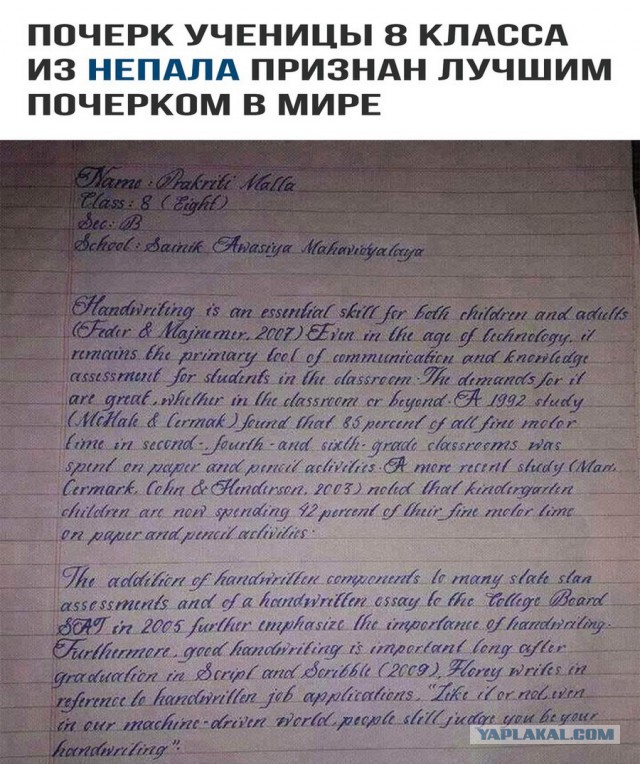 ПОЧЕРК УЧЕНИЦЫ 8 КЛАССА
ИЗ НЕПАЛА ПРИЗНАН ЛУЧШИМ
ПОЧЕРКОМ В МИРЕ
Name : Prakriti Malla
Class : 8 ( Eight )
Sec : B
School : Sainik Awasiya Mahavidyalaya
Handwriting is an essential skill for both children and adults
(Feder & Majnemer, 2007) Even in the age of technology, it
remains the primary tool of communication and knowledge
assessment for students in the classroom. The demands for it
are great, whether in the classroom or beyond. A 1992 study
(McHale & Cermak) found that 85 percent of all fine motor
time in second-, fourth - and sixth- grade classrooms was
spent on paper and pencil activities. A more recent study (Marr,
Cermark, Cohn & Henderson, 2003) noted that kindergarten
children are now spending 42 percent of their fine motor time
on paper and pencil activities.
The addition of handwritten components to many state stan
assessments and of a handwritten essay to the College Board
SAT in 2005 further emphasize the importance of handwriting.
Furthermore, good handwriting is important long after
graduation in Script and Scribble (2009), Florey writes in
reference to handwritten job applications, "Like it or not, even
in our machine-driven world, people still judge you be your
handwriting".
YAPLAKAL.COM